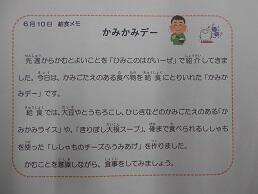 6月10日 給食メモ
かみかみデー
先週からかむとよいことを「ひみこのはがいーぜ」で紹介してきま
した。今日は、かみごたえのある食べ物を給食にとりいれた「かみか
みデー」です。
給食では、大豆やとうもろこし、ひじきなどのかみごたえのある「か
みかみライス」や、「きりぼし大根スープ」、骨まで食べられるししゃも
を使った「ししゃものチーズふうみあげ」を作りました。
かむことを意識しながら、食事をしてみましょう。